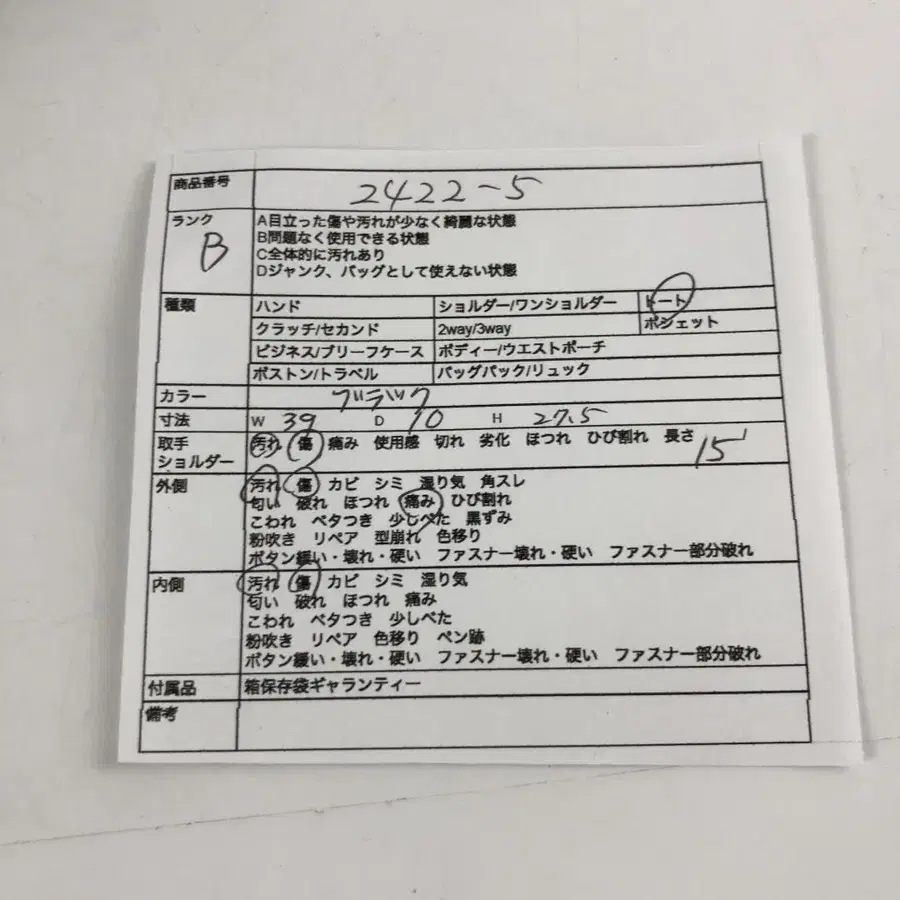 商品番号 2422-5
ランク B
A目立った傷や汚れが少なく綺麗な状態
B問題なく使用できる状態
C全体的に汚れあり
Dジャンク、バッグとして使えない状態
種類 ハンド ショルダー/ワンショルダー トート
クラッチ/セカンド 2way/3way ポシェット
ビジネス/ブリーフケース ボディー/ウエストポーチ
ボストン/トラベル バッグパック/リュック
カラー ブラック
寸法 W 39 D 10 H 27.5
取手 汚れ 傷 痛み 使用感 切れ 劣化 ほつれ ひび割れ 長さ 15
ショルダー
外側 汚れ 傷 カビ シミ 湿り気 角スレ
匂い 破れ ほつれ 痛み ひび割れ
こわれ ベタつき 少しべた 黒ずみ
粉吹き リペア 型崩れ 色移り
ボタン緩い・壊れ・硬い ファスナー壊れ・硬い ファスナー部分破れ
内側 汚れ 傷 カビ シミ 湿り気
匂い 破れ ほつれ 痛み
こわれ ベタつき 少しべた
粉吹き リペア 色移り ペン跡
ボタン緩い・壊れ・硬い ファスナー壊れ・硬い ファスナー部分破れ
付属品 箱保存袋ギャランティー
備考